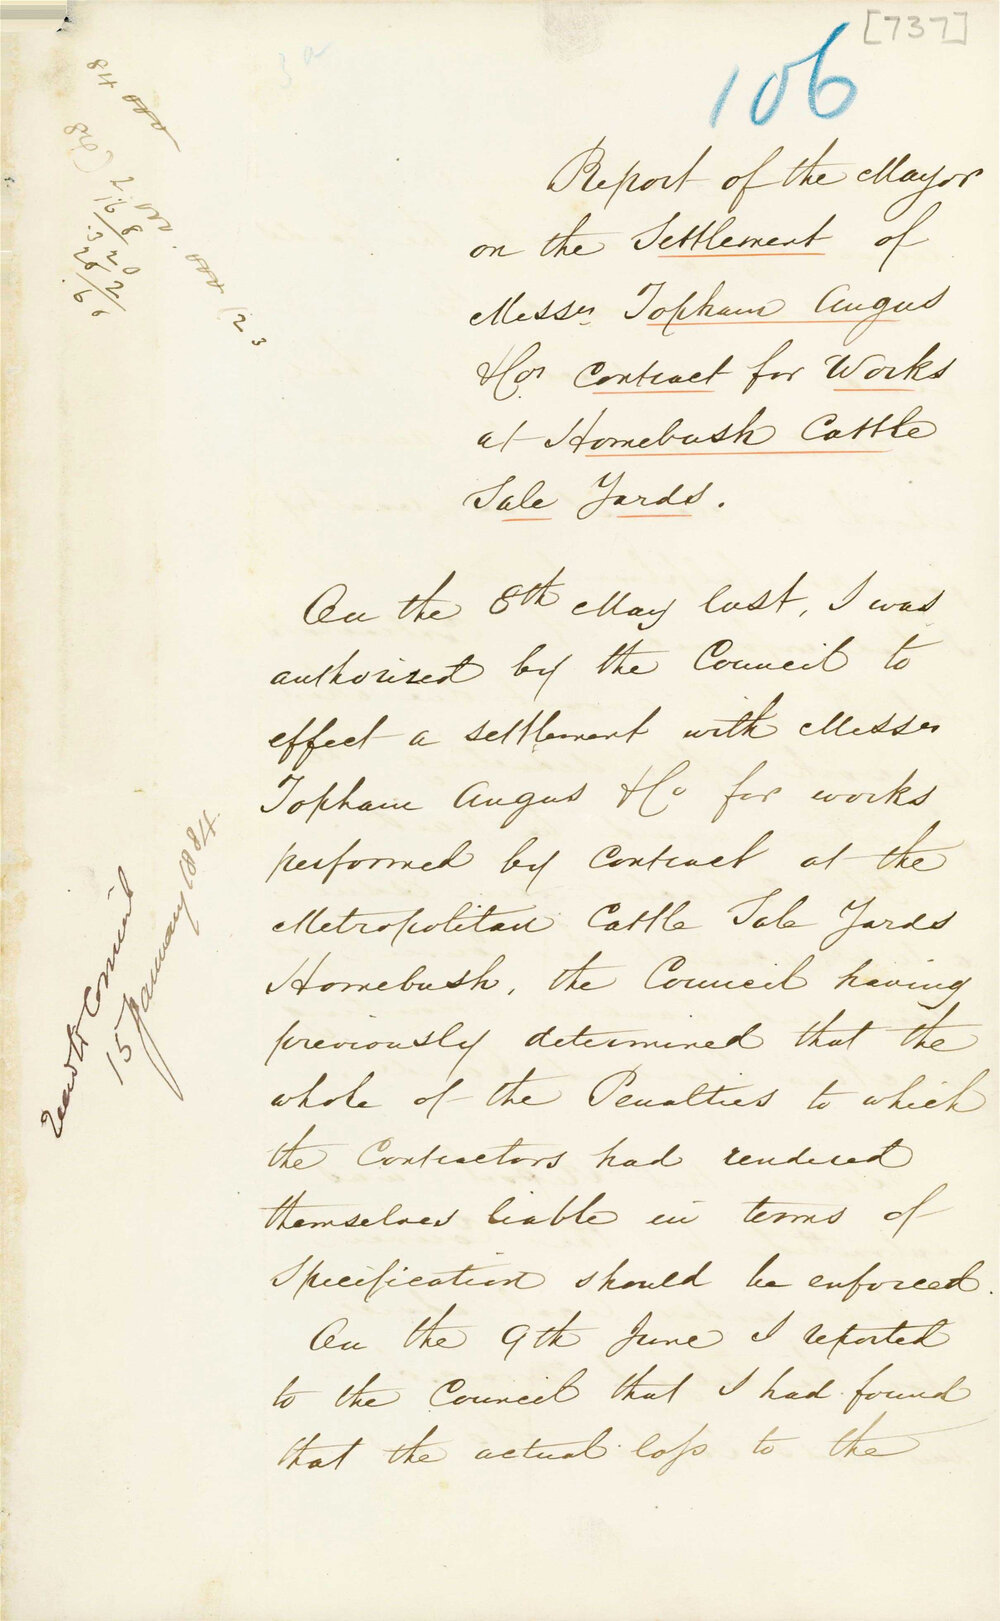 [737]
106
Report of the Mayor
on the Settlement of
Messrs Topham Angus
& Co's Contract for Works
at Homebush Cattle
Sale Yards.
On the 8th May last, I was
authorised by the Council to
effect a settlement with Messrs
Topham Angus & Co for works
performed by Contract at the
Metropolitan Cattle Sale Yards
Homebush, the Council having
previously determined that the
whole of the Penalties to which
the Contractors had rendered
themselves liable in terms of
Specification should be enforced.
On the 9th June I reported
to the Council that I had found
that the actual loss to the
Council
15 January 1884